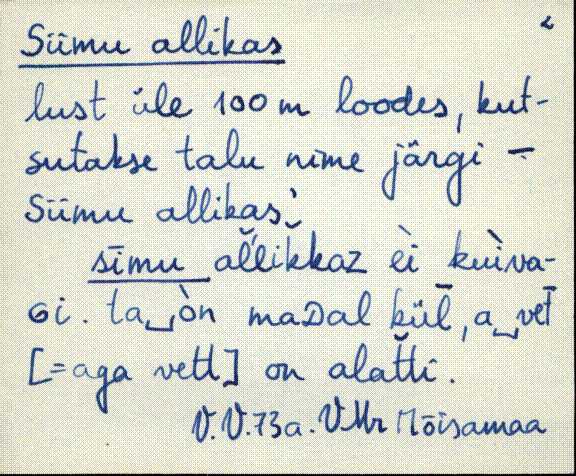 2
Siimu allikas
lust üle 100 m loodes, kut-
sutakse talu nime järgi ÷
Siimu allikas.
sīmu allikkaz èi kuìva-
Gi. ta‿òn maDal kül̄, a‿vet̄
[=aga vett] on alatti.
V.V.73a. VMr Mõisamaa